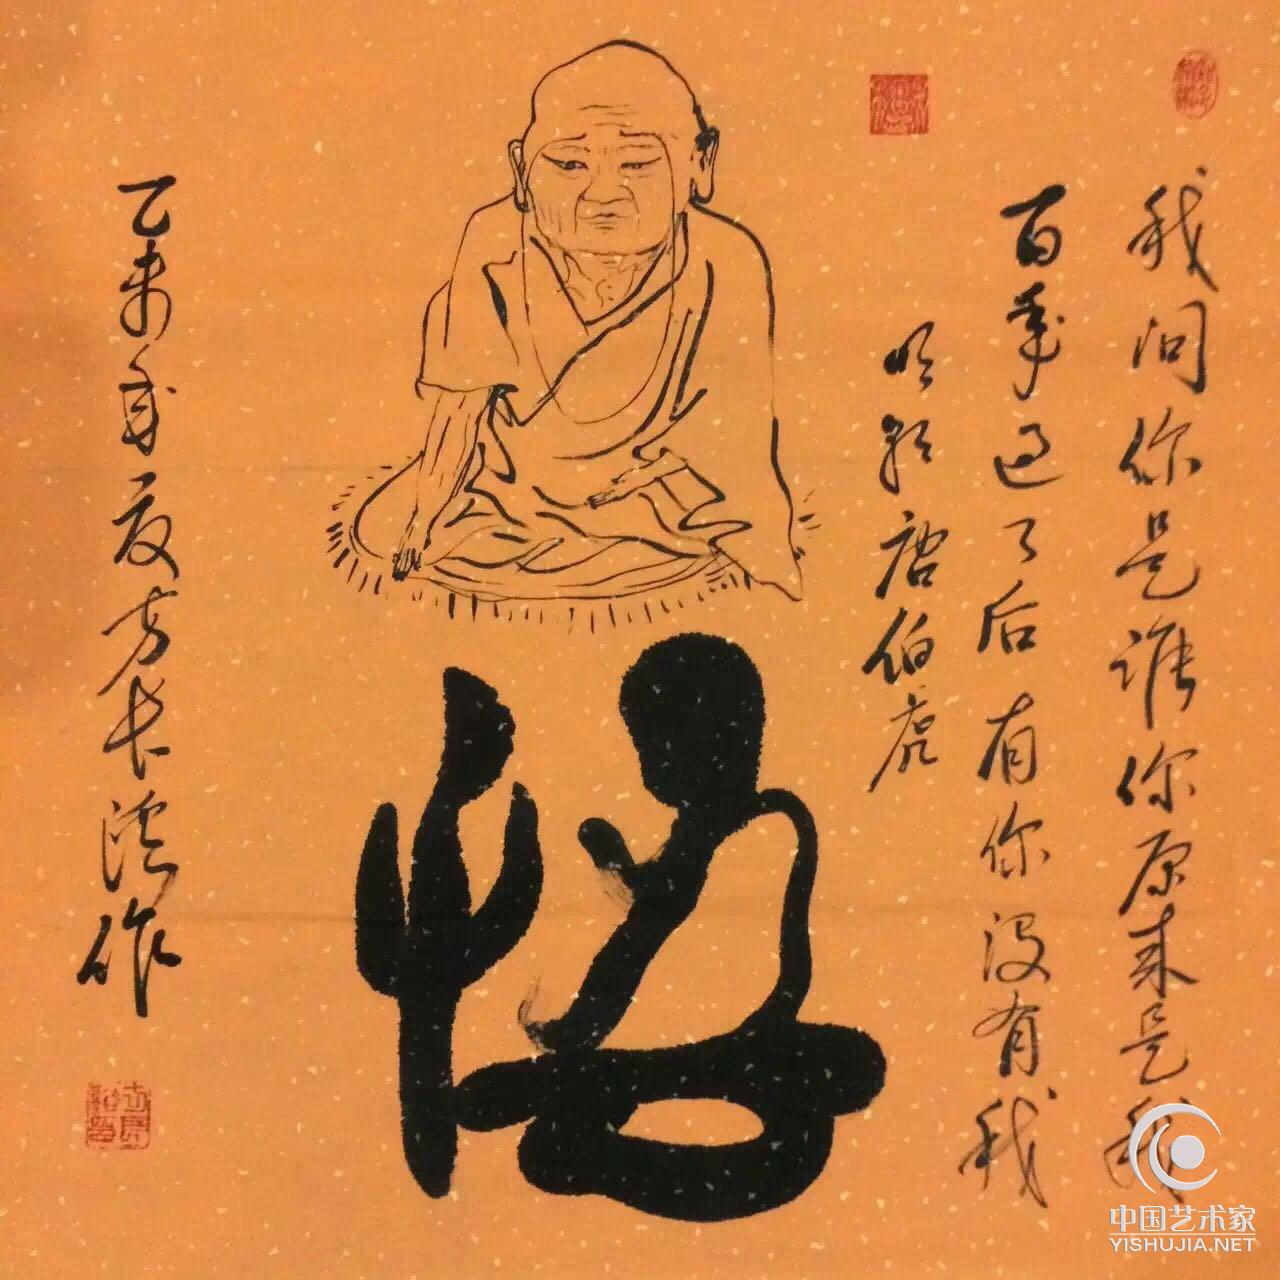 我问你是谁你原来是我
百年过了后有你没有我
明朝唐伯虎
悟
乙未年夏方长江作
中国艺术家
YISHUJIA.NET